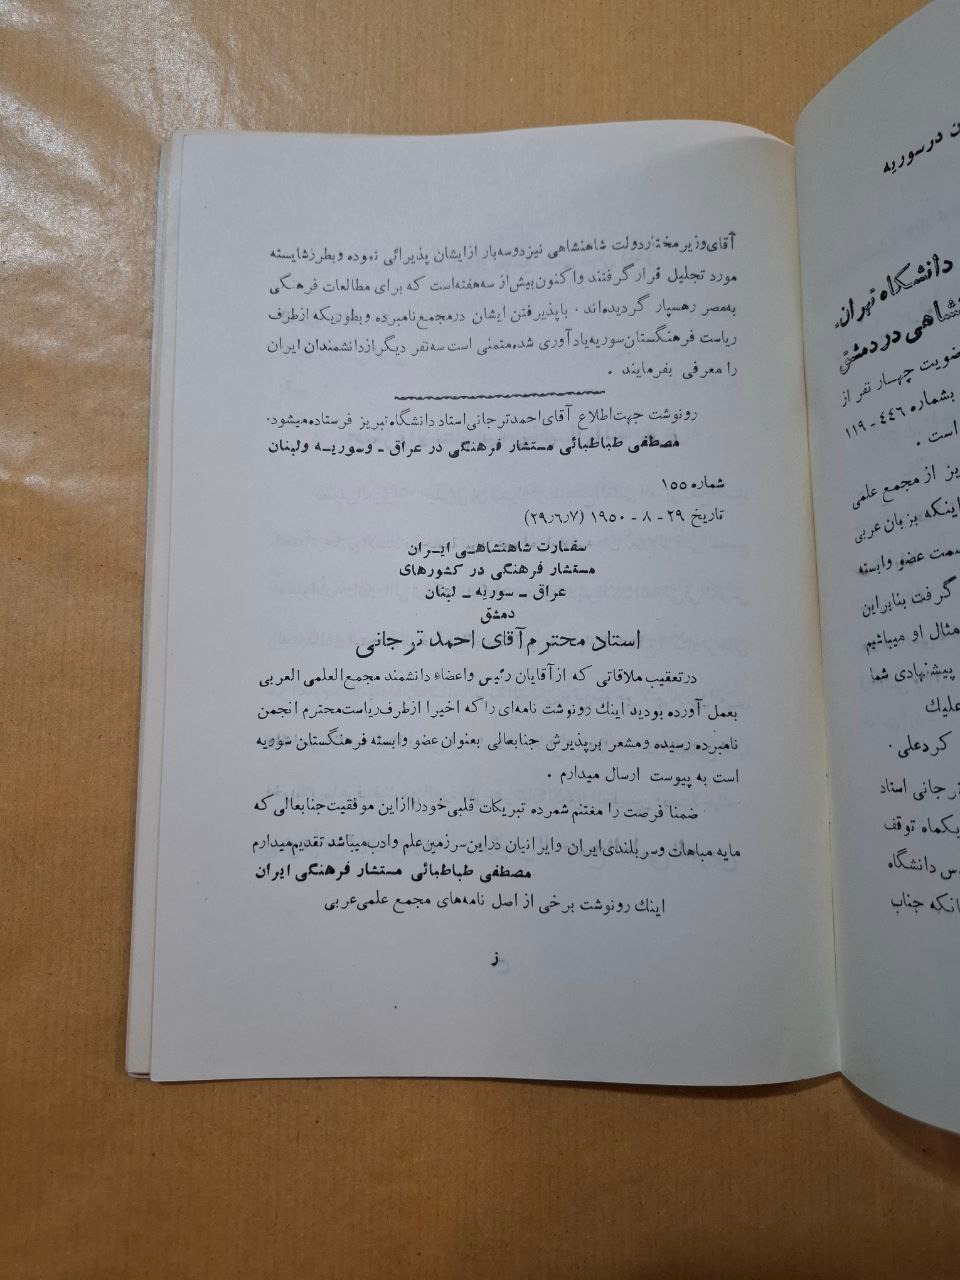 آقای وزیر مختار دولت شاهنشاهی نیز دوسه بار از ایشان پذیرائی نموده و بطرز شایسته
مورد تجلیل قرار گرفتند و اکنون بیش از سه هفته است که برای مطالعات فرهنگی
به مصر رهسپار گردیده‌اند . با پذیرفتن ایشان در مجمع نامبرده و بطوریکه از طرف
ریاست فرهنگستان سوریه یادآوری شده متمنی است سه نفر دیگر از دانشمندان ایران
را معرفی بفرمایند .
رونوشت جهت اطلاع آقای احمد ترجانی استاد دانشگاه تبریز فرستاده میشود.
مصطفی طباطبائی مستشار فرهنگی در عراق - وسوریه ولبنان
شماره ۱۵۵
تاریخ ۲۹ - ۸ - ۱۹۵۰ (۲۹٫۶٫۷)
سفارت شاهنشاهی ایران
مستشار فرهنگی در کشورهای
عراق - سوریه - لبنان
دمشق
استاد محترم آقای احمد ترجانی
در تعقیب ملاقاتی که از آقایان رئیس و اعضاء دانشمند مجمع العلمی العربی
بعمل آورده بودید اینك رونوشت نامه‌ای را که اخیرا از طرف ریاست محترم انجمن
نامبرده رسیده و مشعر بر پذیرش جنابعالی بعنوان عضو وابسته فرهنگستان سوریه
است به پیوست ارسال میدارم .
ضمنا فرصت را مغتنم شمرده تبریکات قلبی خود را از این موفقیت جنابعالی که
مایه مباهات و سربلندی ایران و ایرانیان در این سرزمین علم و ادب میباشد تقدیم میدارم
مصطفی طباطبائی مستشار فرهنگی ایران
اینك رونوشت برخی از اصل نامه‌های مجمع علمی عربی
ز
در سوریه
دانشگاه تهران-
در دمشق
ضویت چهار نفر از
بشماره ۴۴۶ - ۱۱۹
است .
از مجمع علمی
اینکه بزبان عربی
سمت عضو وابسته
گرفت بنابراین
مثال او میباشیم
پیشنهادی شما
علیك
کردعلی .
ترجانی استاد
یکماه توقف
دانشگاه
جناب